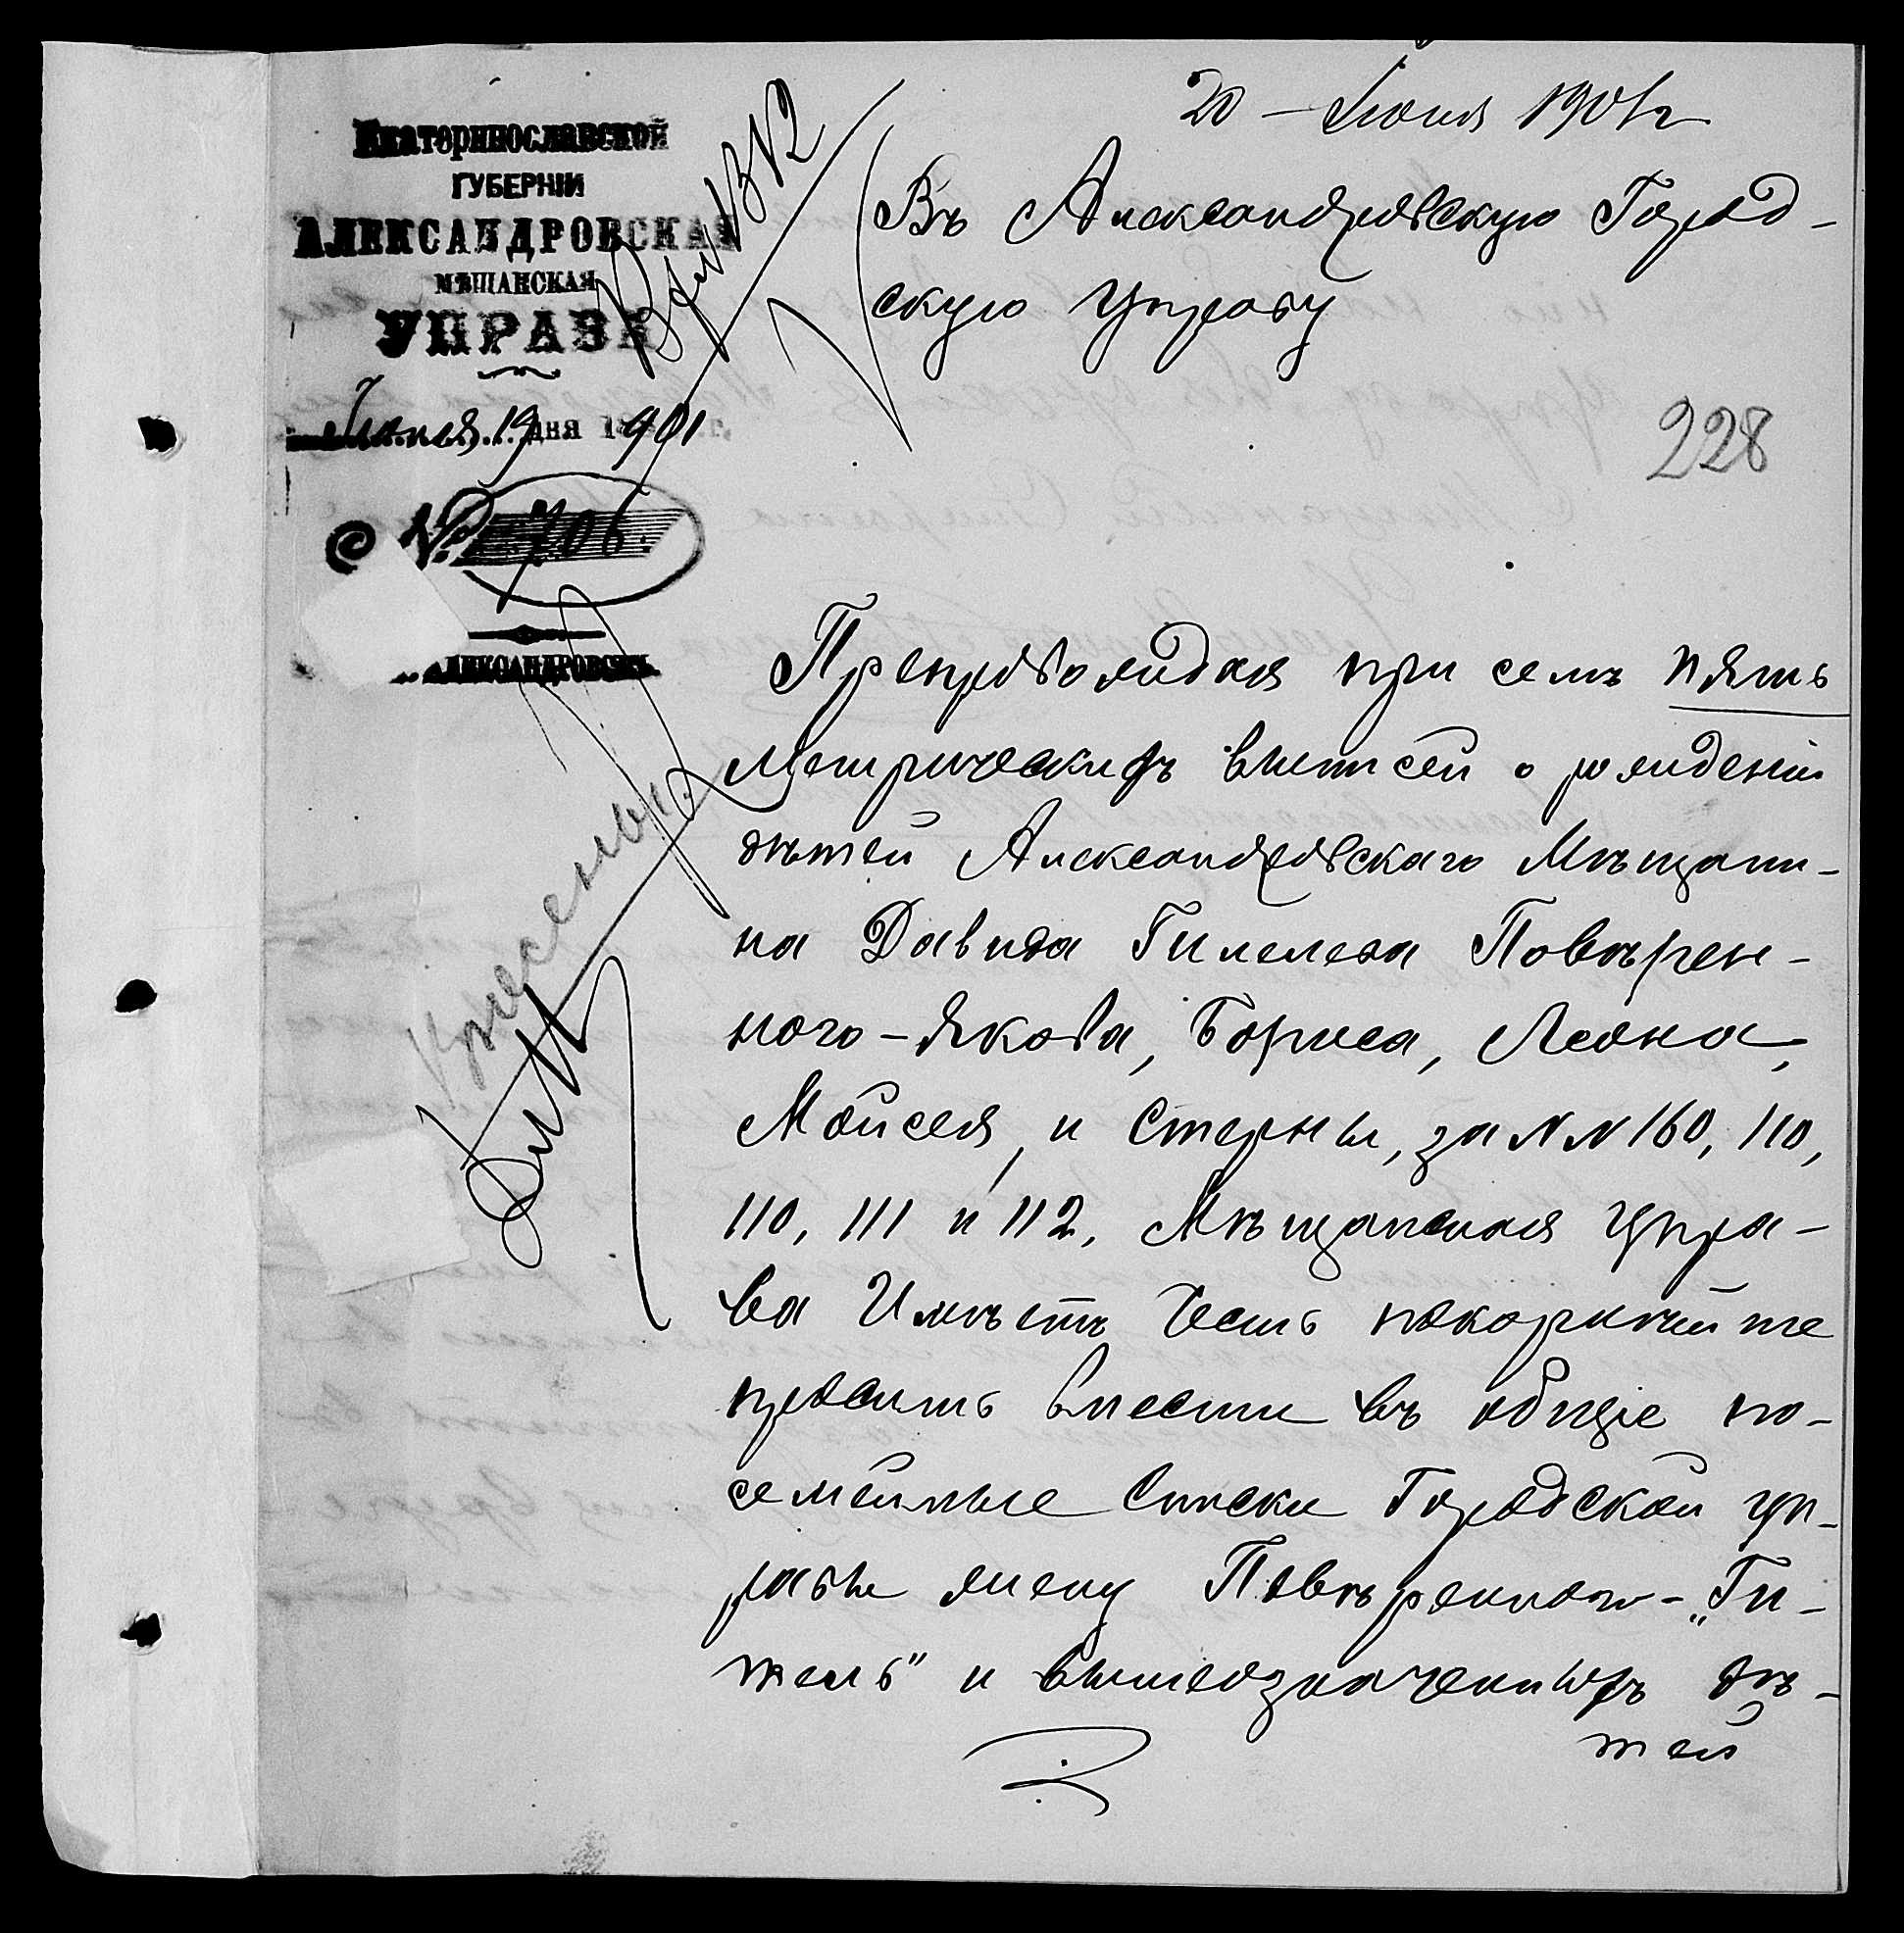 20 – Июня 1901 г
Екатеринославской
ГУБЕРНІИ
АЛЕКСАНДРОВСКАЯ
МѢЩАНСКАЯ
УПРАВА
Июня 19 дня 1901
№ 706.
АЛЕКСАНДРОВСКЪ
Въ Александровскую Город-
скую Управу
228
Препровождая при семъ пять
метрическихъ выписей о рожденіи
дѣтей Александровскаго Мѣщани-
на Давида Гилелева Повѣрен-
ного – Якова, Бориса, Леона,
Мойсея, и Стерны, за NN 160, 110,
110, 111 и 112, Мѣщанская Упра-
ва Имѣетъ Честь покорнѣйше
просить внести въ общіе по-
семейные Списки Городской уп-
равы жену Повѣренного – „Ги-
тель" и вышеозначенныхъ дѣ-
тей